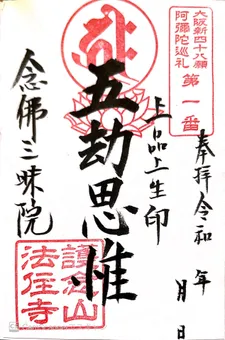 大阪新四十八願
阿彌陀巡礼
第一番
奉拝令和　年　月　日
上品上生印
五劫思惟
念佛三昧院
護念山
法住寺